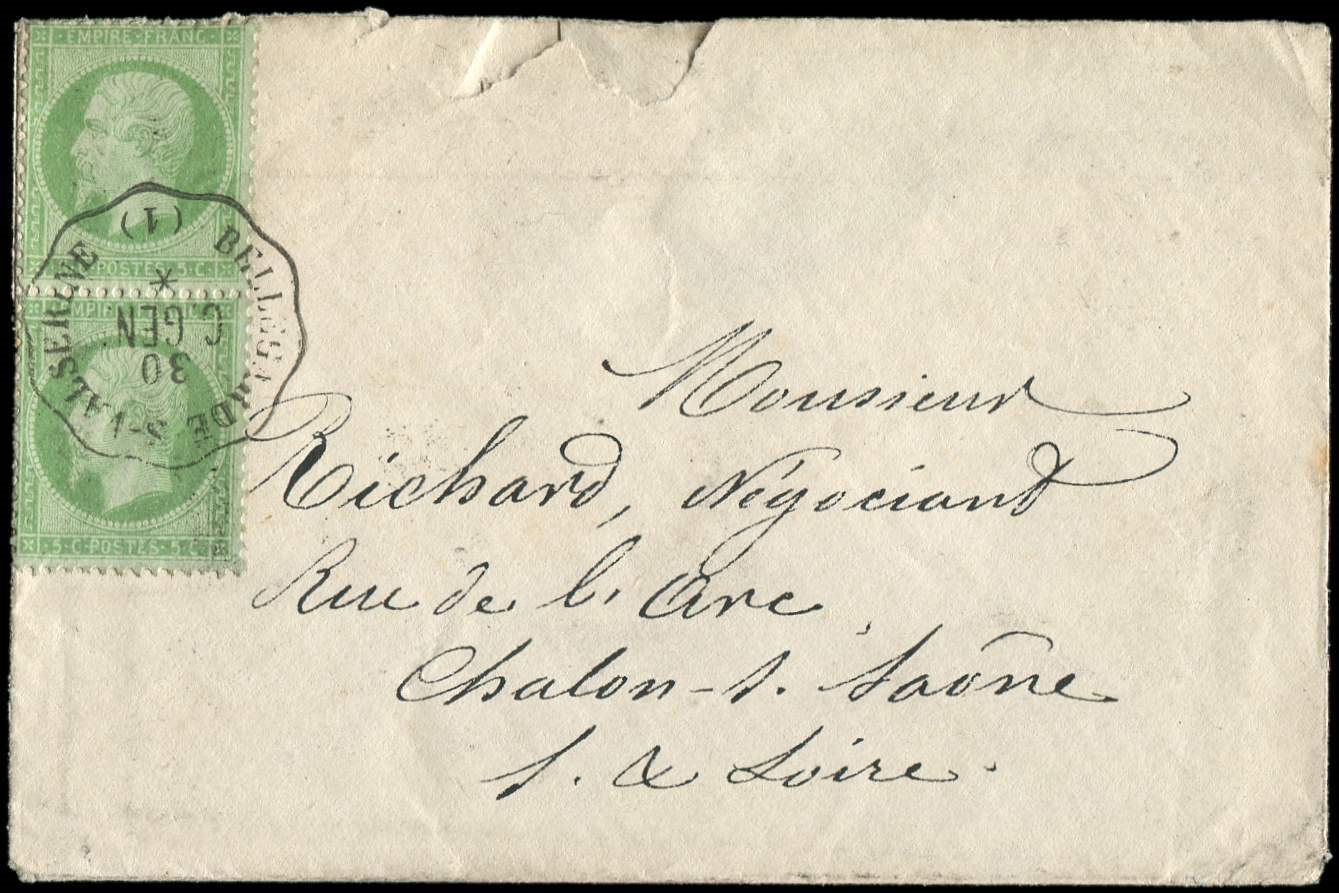 EMPIRE·FRANC·
POSTES·5·C·
EMPIR
·5·C·POSTES·5·C·
BELLEGARDE S-VALSERINE (1)
C. GEN.
30
Monsieur
Richard, Négociant
Rue de l'Arc
Chalon-s. Saône
S. & Loire.